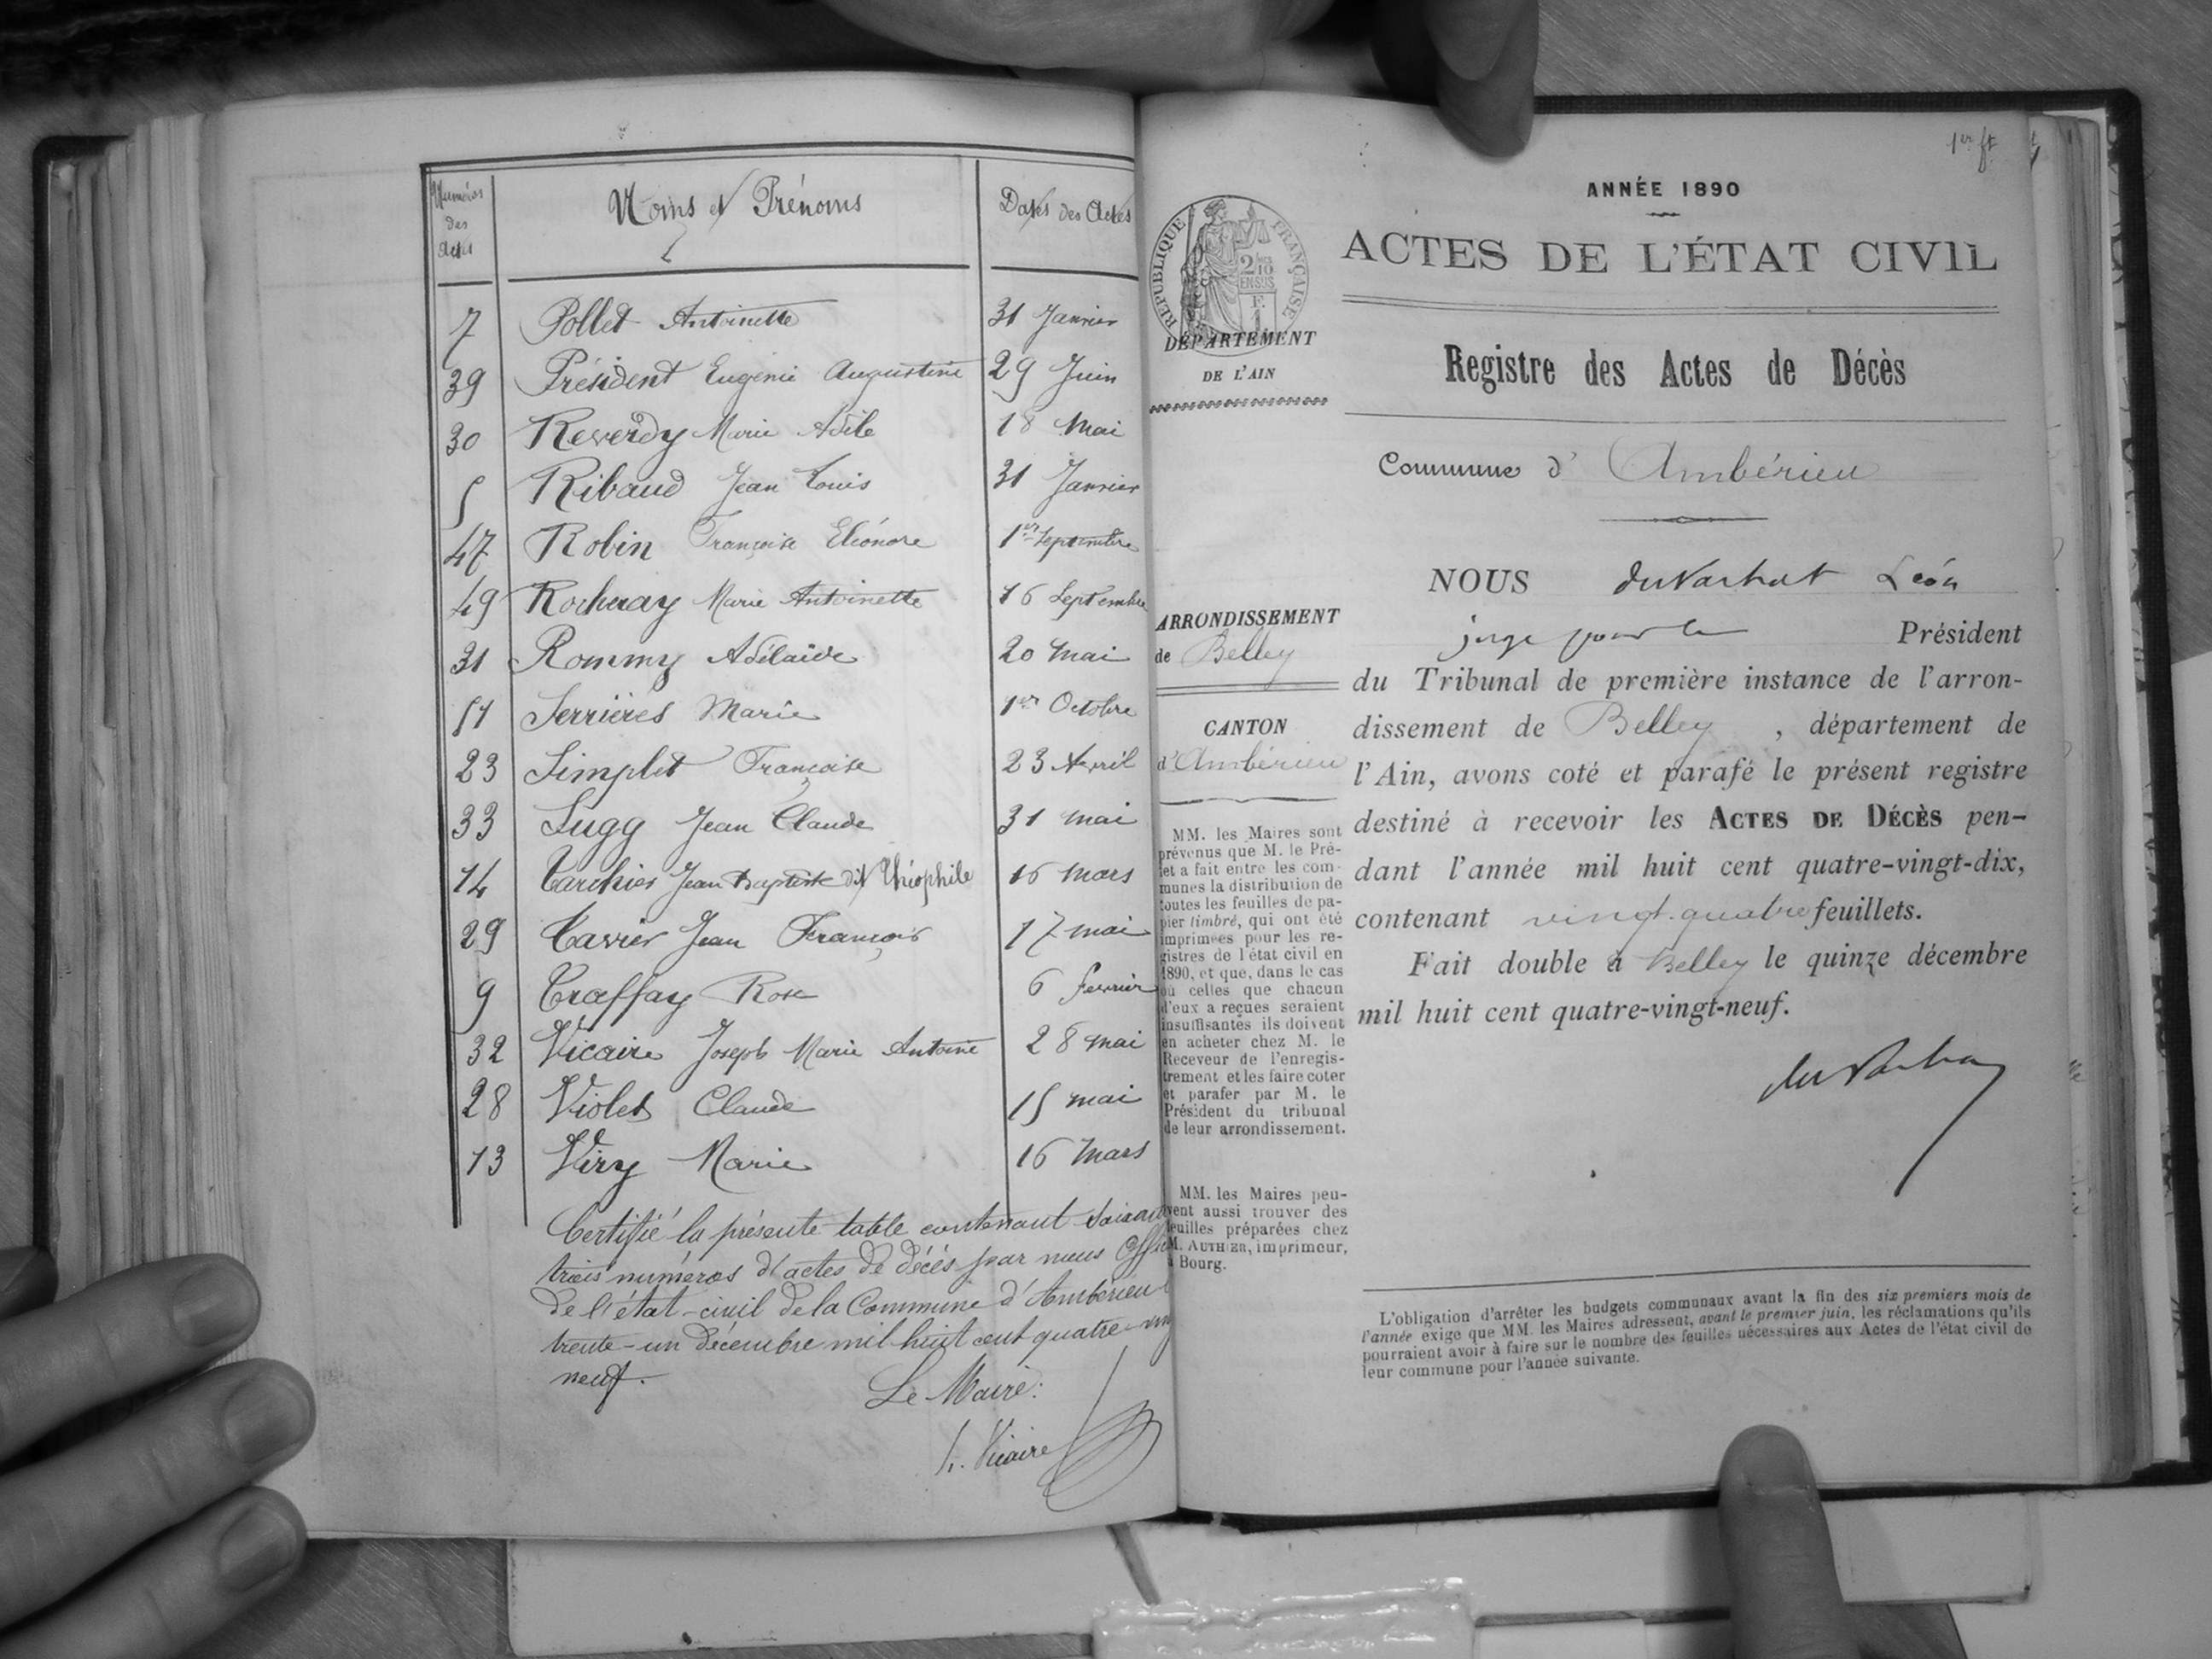 Numéros des Actes
Noms et Prénoms
Dates des Actes
7 Pollet Antoinette 31 Janvier
39 Président Eugénie Augustine 29 Juin
30 Reverdy Marie Adèle 18 Mai
5 Ribaud Jean Louis 31 Janvier
47 Robin Françoise Eléonore 1er Septembre
49 Rocheray Marie Antoinette 16 Septembre
31 Rommy Adélaïde 20 Mai
51 Serrières Marie 1er Octobre
23 Simplet Françoise 23 Avril
33 Sugg Jean Claude 31 mai
14 Tarchier Jean Baptiste dit Théophile 16 Mars
29 Tavier Jean François 17 mai
9 Traffay Rose 6 fevrier
32 Vicaire Joseph Marie Antoine 28 mai
28 Violet Claude 15 mai
13 Viry Marie 16 Mars
Certifié la présente table contenant soixante
trois numéros d'actes de décés par nous
de l'état-civil de la Commune d'Ambérieu
trente-un décembre mil huit cent quatre
neuf.
Le Maire:
Vicaire
1er ft
ANNÉE 1890
ACTES DE L'ÉTAT CIVIL
RÉPUBLIQUE FRANÇAISE
2/10 EN SUS
F. 1
DÉPARTEMENT
DE L'AIN
Registre des Actes de Décès
Commune d' Ambérieu
ARRONDISSEMENT
de Belley
CANTON
d'Ambérieu
MM. les Maires sont
prévenus que M. le Pré-
fet a fait entre les com-
munes la distribution de
toutes les feuilles de pa-
pier timbré, qui ont été
imprimées pour les re-
gistres de l'état civil en
1890, et que, dans le cas
où celles que chacun
d'eux a reçues seraient
insuffisantes ils doivent
en acheter chez M. le
Receveur de l'enregis-
trement et les faire coter
et parafer par M. le
Président du tribunal
de leur arrondissement.
MM. les Maires peu-
vent aussi trouver des
feuilles préparées chez
M. AUTHIER, imprimeur,
à Bourg.
NOUS duVachat Léon
juge pour le Président
du Tribunal de première instance de l'arron-
dissement de Belley , département de
l'Ain, avons coté et parafé le présent registre
destiné à recevoir les ACTES DE DÉCÈS pen-
dant l'année mil huit cent quatre-vingt-dix,
contenant vingt-quatre feuillets.
Fait double à Belley le quinze décembre
mil huit cent quatre-vingt-neuf.
duVachat
L'obligation d'arrêter les budgets communaux avant la fin des six premiers mois de
l'année exige que MM. les Maires adressent, avant le premier juin, les réclamations qu'ils
pourraient avoir à faire sur le nombre des feuilles nécessaires aux Actes de l'état civil de
leur commune pour l'année suivante.